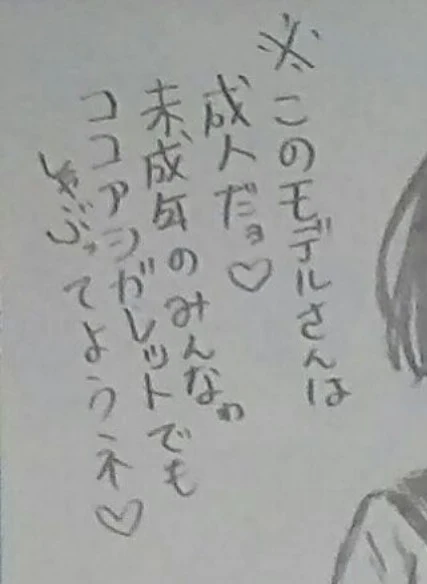 ※このモデルさんは
成人だョ♡
未成年のみんなゎ
ココアシガレットでも
しゃぶってようネ♡